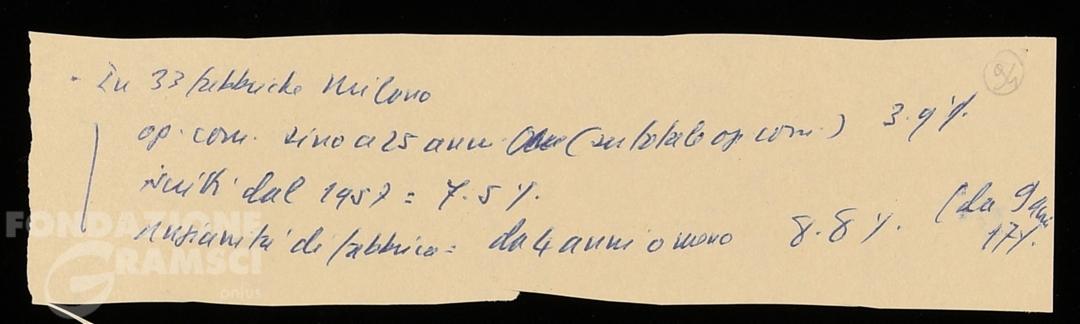 94
- In 33 fabbriche Milano
op. com. sino a 25 anni (su totale op. com.) 3.9%
iscritti dal 1957 = 7.5%.
Anzianità di fabbrica = da 4 anni o meno 8.8%. (da 9 anni 17%.
FONDAZIONE
GRAMSCI
onlus